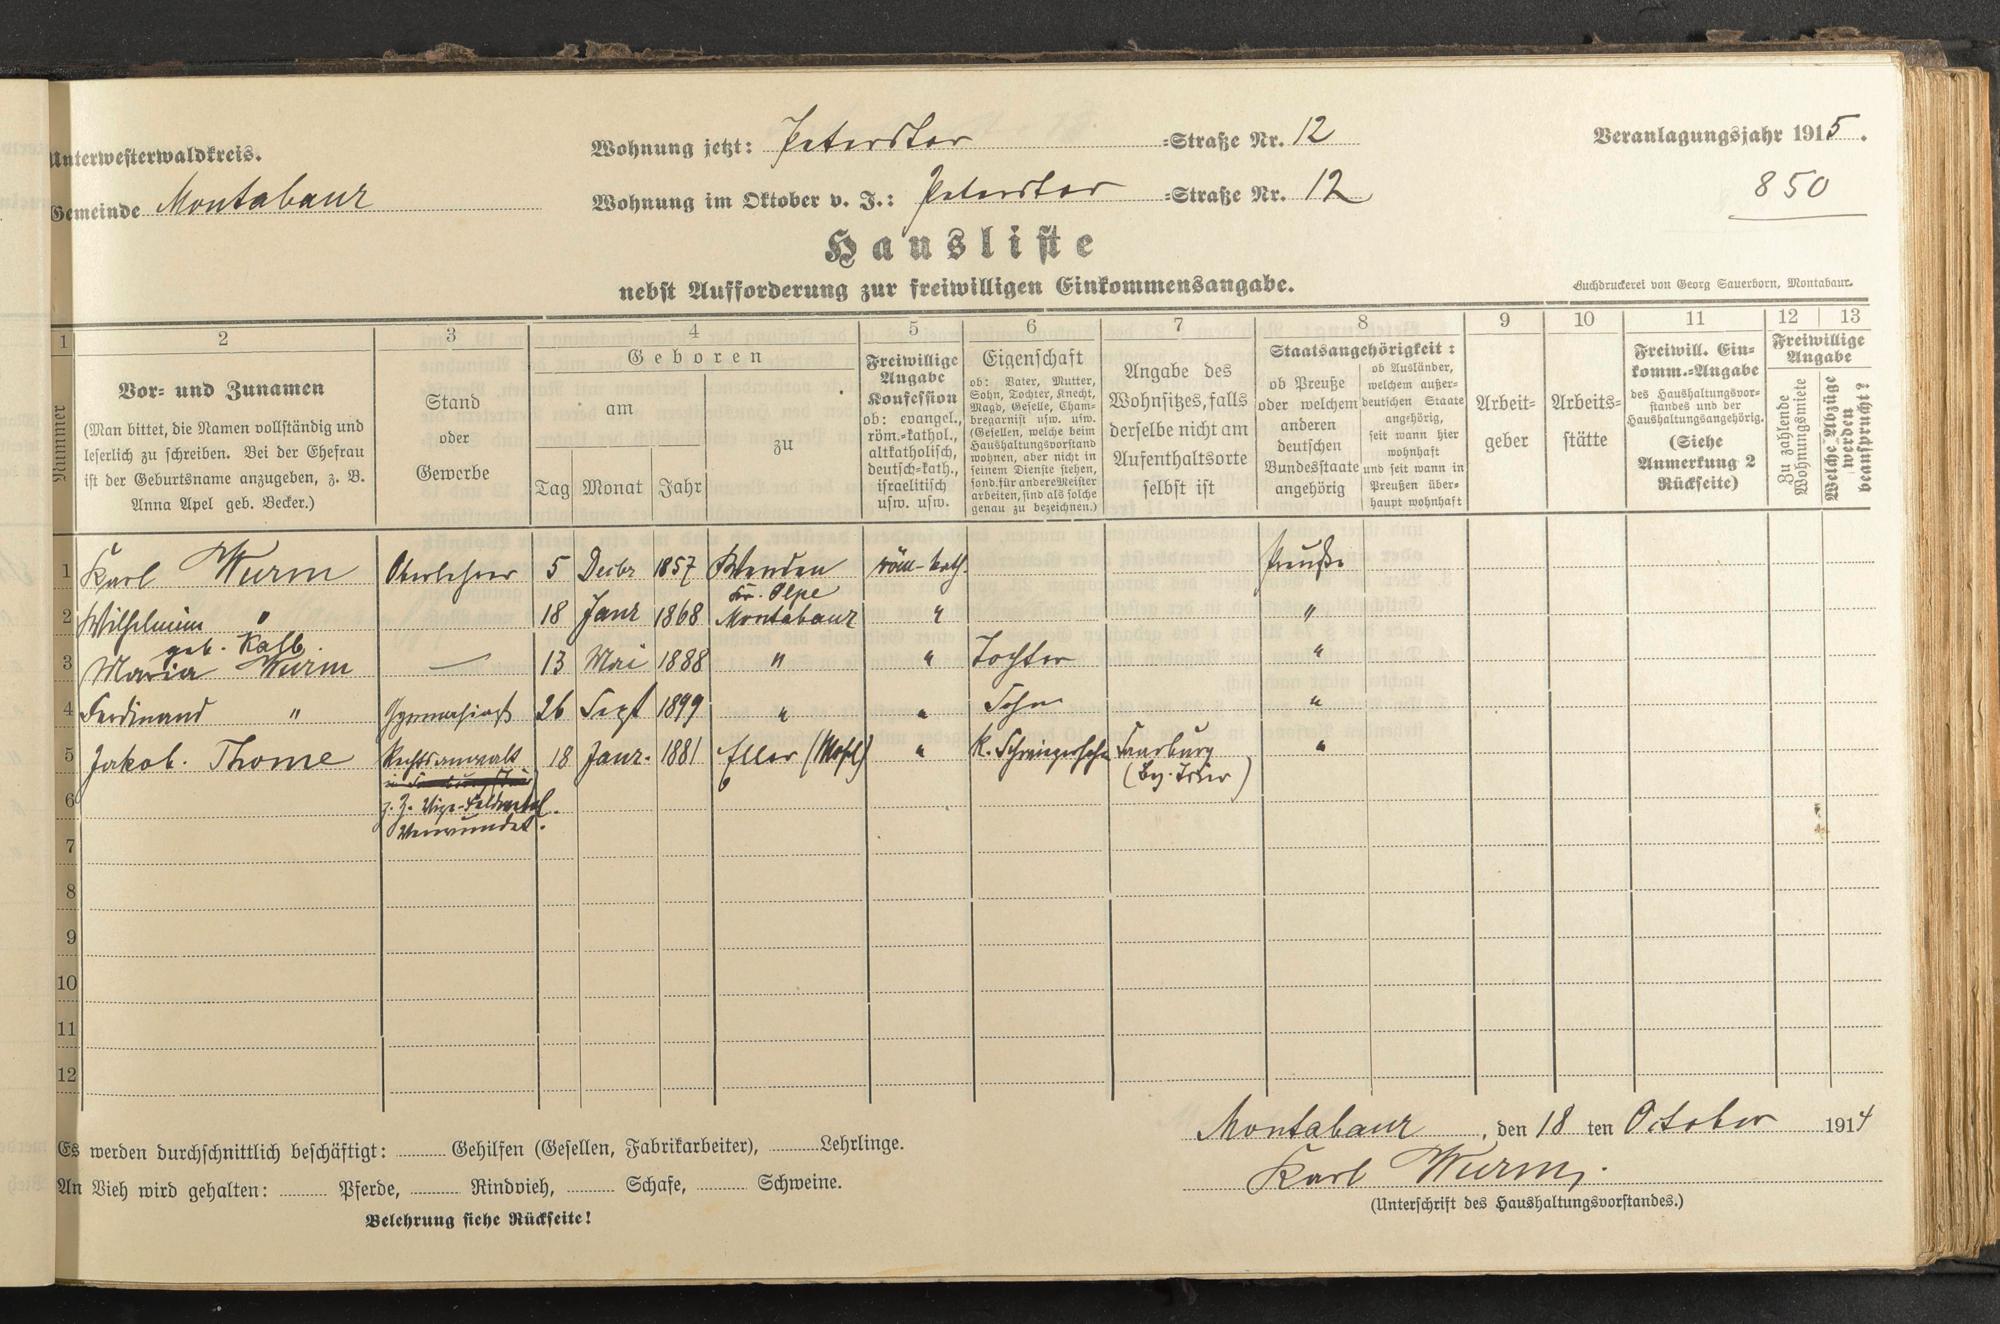 Unterwesterwaldkreis.
Gemeinde Montabaur
Wohnung jetzt: Peterstor =Straße Nr. 12
Wohnung im Oktober v. J.: Peterstor =Straße Nr. 12
Veranlagungsjahr 1915.
850
Hausliste
nebst Aufforderung zur freiwilligen Einkommensangabe.
Buchdruckerei von Georg Sauerborn, Montabaur.
1
Nummer
2
Vor- und Zunamen
(Man bittet, die Namen vollständig und
leserlich zu schreiben. Bei der Ehefrau
ist der Geburtsname anzugeben, z. B.
Anna Apel geb. Becker.)
3
Stand
oder
Gewerbe
4
Geboren
am
Tag Monat Jahr
zu
5
Freiwillige
Angabe
Konfession
ob: evangel.,
röm.=kathol.,
altkatholisch,
deutsch=kath.,
israelitisch
usw. usw.
6
Eigenschaft
ob: Vater, Mutter,
Sohn, Tochter, Knecht,
Magd, Geselle, Cham-
bregarnist usw. usw.
(Gesellen, welche beim
Haushaltungsvorstand
wohnen, aber nicht in
seinem Dienste stehen,
sond. für andere Meister
arbeiten, sind als solche
genau zu bezeichnen.)
7
Angabe des
Wohnsitzes, falls
derselbe nicht am
Aufenthaltsorte
selbst ist
8
Staatsangehörigkeit:
ob Preuße
oder welchem
anderen
deutschen
Bundesstaate
angehörig
ob Ausländer,
welchem außer-
deutschen Staate
angehörig,
seit wann hier
wohnhaft
und seit wann in
Preußen über-
haupt wohnhaft
9
Arbeit-
geber
10
Arbeits-
stätte
11
Freiwill. Ein-
komm.=Angabe
des Haushaltungsvor-
standes und der
Haushaltungsangehörig.
(Siehe
Anmerkung 2
Rückseite)
12 13
Freiwillige
Angabe
Zu zahlende
Wohnungsmiete
Welche Abzüge
werden
beansprucht?
1 Karl Wurm Oberlehrer 5 Decbr 1857 Wenden röm-kath Preuße
Kr. Olpe
2 Wilhelmine " 18 Janr 1868 Montabaur " "
geb. Kalb.
3 Maria Wurm — 13 Mai 1888 " " Tochter "
4 Ferdinand " Gymnasiast 26 Sept 1899 " " Sohn "
5 Jakob. Thome Rechtsanwalt 18 Janr. 1881 Eller (Mosel) " K. Schwiegersohn Saarburg "
(Bz. Trier)
6 z. Z. Vize-Feldwebel.
Verwundet.
7
8
9
10
11
12
Es werden durchschnittlich beschäftigt: Gehilfen (Gesellen, Fabrikarbeiter), Lehrlinge.
An Vieh wird gehalten: Pferde, Rindvieh, Schafe, Schweine.
Belehrung siehe Rückseite!
Montabaur, den 18 ten October 1914
Karl Wurm.
(Unterschrift des Haushaltungsvorstandes.)